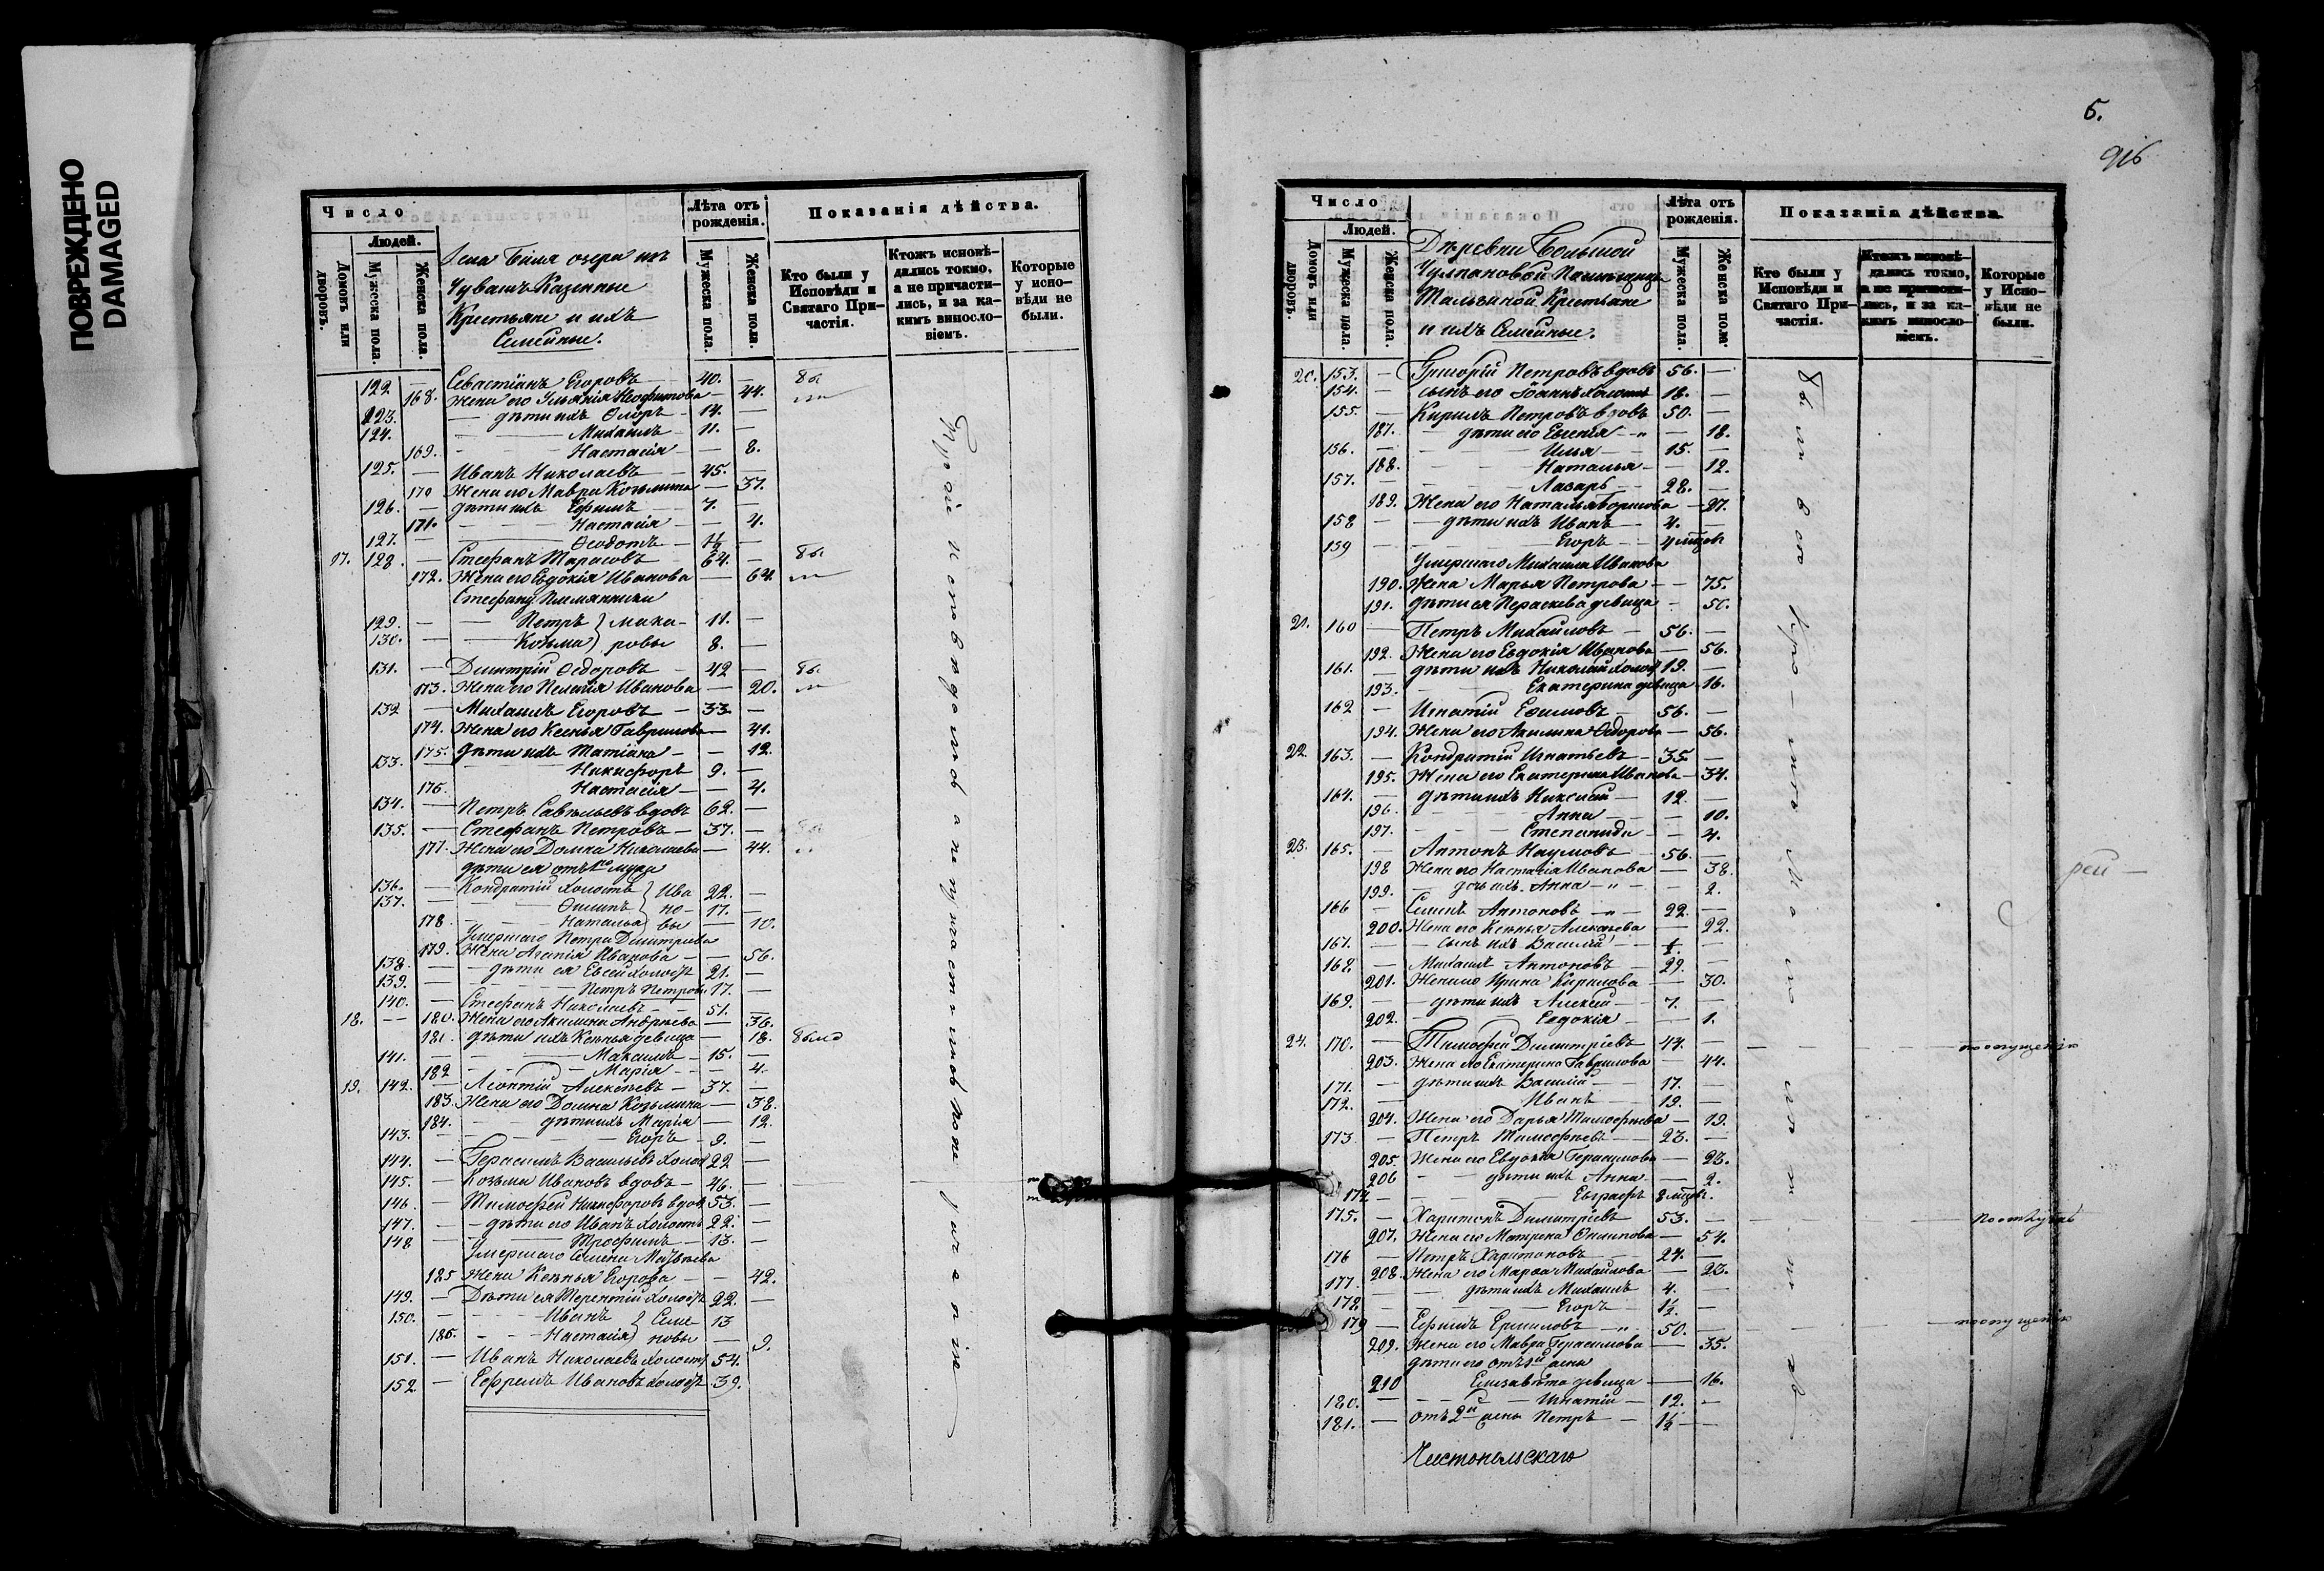 ПОВРЕЖДЕНО
DAMAGED
Число
Лѣта отъ рожденія.
Показанія дѣйства.
Домовъ или дворовъ.
Людей.
Мужеска пола.
Женска пола.
Села Бѣля озера изъ
Чувашъ Казенные
Крестьяне и ихъ
Семейные.
Мужеска пола.
Женска пола.
Кто были у Исповѣди и Святаго Причастія.
Ктожъ исповѣдались токмо, а не причастились, и за какимъ винословіемъ.
Которые у исповѣди не были.
122 — Севастіанъ Егоровъ 40. —
168. Жена его Ульянія Неофитова — 44.
123. дѣти ихъ Флоръ 14. —
124. Михаилъ 11. —
169. Настасія — 8.
125. — Иванъ Николаевъ 45. —
170 Жена его Мавра Козьмина — 37.
126. — дѣти ихъ Ефимъ 7. —
171. Настасія — 4.
127. — Ѳеодотъ 1½ —
17. 128. — Стефанъ Тарасовъ 64. —
172. Жена его Евдокія Иванова — 64
Стефану Племянники
129. — Петръ } мика- 11. —
130. — Козьма } ровы 8. —
131. — Дмитрій Ѳедоровъ 42 —
173. Жена его Пелагія Иванова — 20.
132 — Михаилъ Егоровъ — 33. —
174. Жена его Ксенья Гаврилова — 41.
175. дѣти ихъ Татіана — 12.
133. Никифоръ 9. —
176. Настасія — 4.
134. — Петръ Савельевъ вдовъ 62. —
135. — Стефанъ Петровъ — 37. —
177. Жена его Домна Николаева — 44.
дѣти ея отъ 1го мужа
136. — Кондратій холостъ } Ива 22. —
137. Филипъ } но- 17. —
178 Наталья } вы — 10.
Умершаго Петра Дмитріева
179. Жена Агапія Иванова — 56.
138. дѣти ея Евсей холостъ 21. —
139. Петръ Петровы 17. —
140. — Стефанъ Николаевъ — 51. —
18. — 180. Жена его Акилина Андреева — 36.
181. дѣти ихъ Ксенья девица — 18. была
141. — Максимъ — 15. —
182 Марія — 4.
19. 142. — Леонтій Алексѣевъ — 37. —
183. Жена его Домна Козьмина — 38.
184. дѣти ихъ Марія — 12.
143. — Егоръ 9. —
144. — Герасимъ Васильевъ холост 22 —
145. — Козьма Ивановъ вдовъ — 46. —
146. — Тимофей Никифоровъ вдов 53. —
147. — дѣти его Иванъ холостъ 22. —
148 — Трофимъ — 13. —
Умершаго Семена Матвѣева
185 Жена Ксенья Егорова — 42.
149. — Дѣти ея Терентій холостъ 22. —
150. — Иванъ } Семе- 13
186. Настасія } новы — 9.
151. — Иванъ Николаевъ холост 54.
152 — Ефремъ Ивановъ холостъ 39.
5.
916
Число
Лѣта отъ рожденія.
Показанія дѣйства.
Домовъ или дворовъ.
Людей.
Мужеска пола.
Женска пола.
Деревни Большой
Чулпановой Помѣщицы
Крестьяне
и ихъ Семейные.
Мужеска пола.
Женска пола.
Кто были у Исповѣди и Святаго Причастія.
Ктожъ исповѣдались токмо, а не причастились, и за какимъ винословіемъ.
Которые у Исповѣди не были.
20. 153. — Григорій Петровъ вдовъ 56. —
154. — сынъ его Іоаннъ холостъ 18. —
155. — Кирилъ Петровъ вдовъ 50. —
187. — дѣти его Евгенія — 18.
156. — Илья 15. —
188. Наталья — 12.
157. — Лазарь — 28. —
189. Жена его Наталья Борисова — 27.
158 — дѣти ихъ Иванъ — 4. —
159 — Егоръ — 4 мѣсяц
Умершаго Михаила Иванова
190. Жена Марья Петрова — 75.
191. дѣти ея Параскева девица — 50.
21. 160 — Петръ Михайловъ — 56. —
192. Жена его Евдокія Иванова — 56.
161. — дѣти ихъ Николай холост 19. —
193. Екатерина девица 16.
162 — Игнатій Ефимовъ — 56. —
194. Жена его Акилина Ѳедорова — 56.
22. 163. — Кондратій Игнатьевъ — 35. —
195. Жена его Екатерина Иванова — 34.
164. — дѣти ихъ Николай — 12. —
196. Анна — 10.
197. Степанида — 4.
23. 165. — Антонъ Наумовъ 56. —
198 Жена его Настасія Иванова — 38.
199. — дочь ихъ Анна — 2.
166 — Семенъ Антоновъ — 22. —
200. Жена его Ксенья Алексѣева — 22.
167. — сынъ ихъ Василій
168. — Михаилъ Антоновъ — 29. —
201. Жена его Ирина Кирилова — 30.
169. — дѣти ихъ Алексѣй — 7. —
202. Евдокія — 1.
24. 170. — Тимофей Димитріевъ 44. — — по опущенію
203. Жена его Екатерина Гаврилова — 44.
171. — дѣти ихъ Василій — 17. —
172. Иванъ — 19. —
204. Жена его Дарья Тимофѣева — 19.
173. — Петръ Тимофѣевъ — 23. —
205. Жена его Евдокія Герасимова — 23.
206 — дѣти ихъ Анна — 2.
174 — Евграфъ 8 мѣсяц.
175. — Харитонъ Димитріевъ 53. —
207. Жена его Матрена Филипова — 54.
176 — Петръ Харитоновъ — 27. —
208. Жена его Марѳа Михайлова — 23.
177 — дѣти ихъ Михаилъ 4. —
178 — Егоръ — 1½. —
179 — Ефимъ Ермиловъ — 50. — — по опущенію
209. Жена его Мавра Герасимова — 35.
дѣти его отъ 1й жены
210 Елизавета девица — 16.
180. — Игнатій — 12. —
181. — отъ 2й жены Петръ — 1½ —
Чистопольскаго